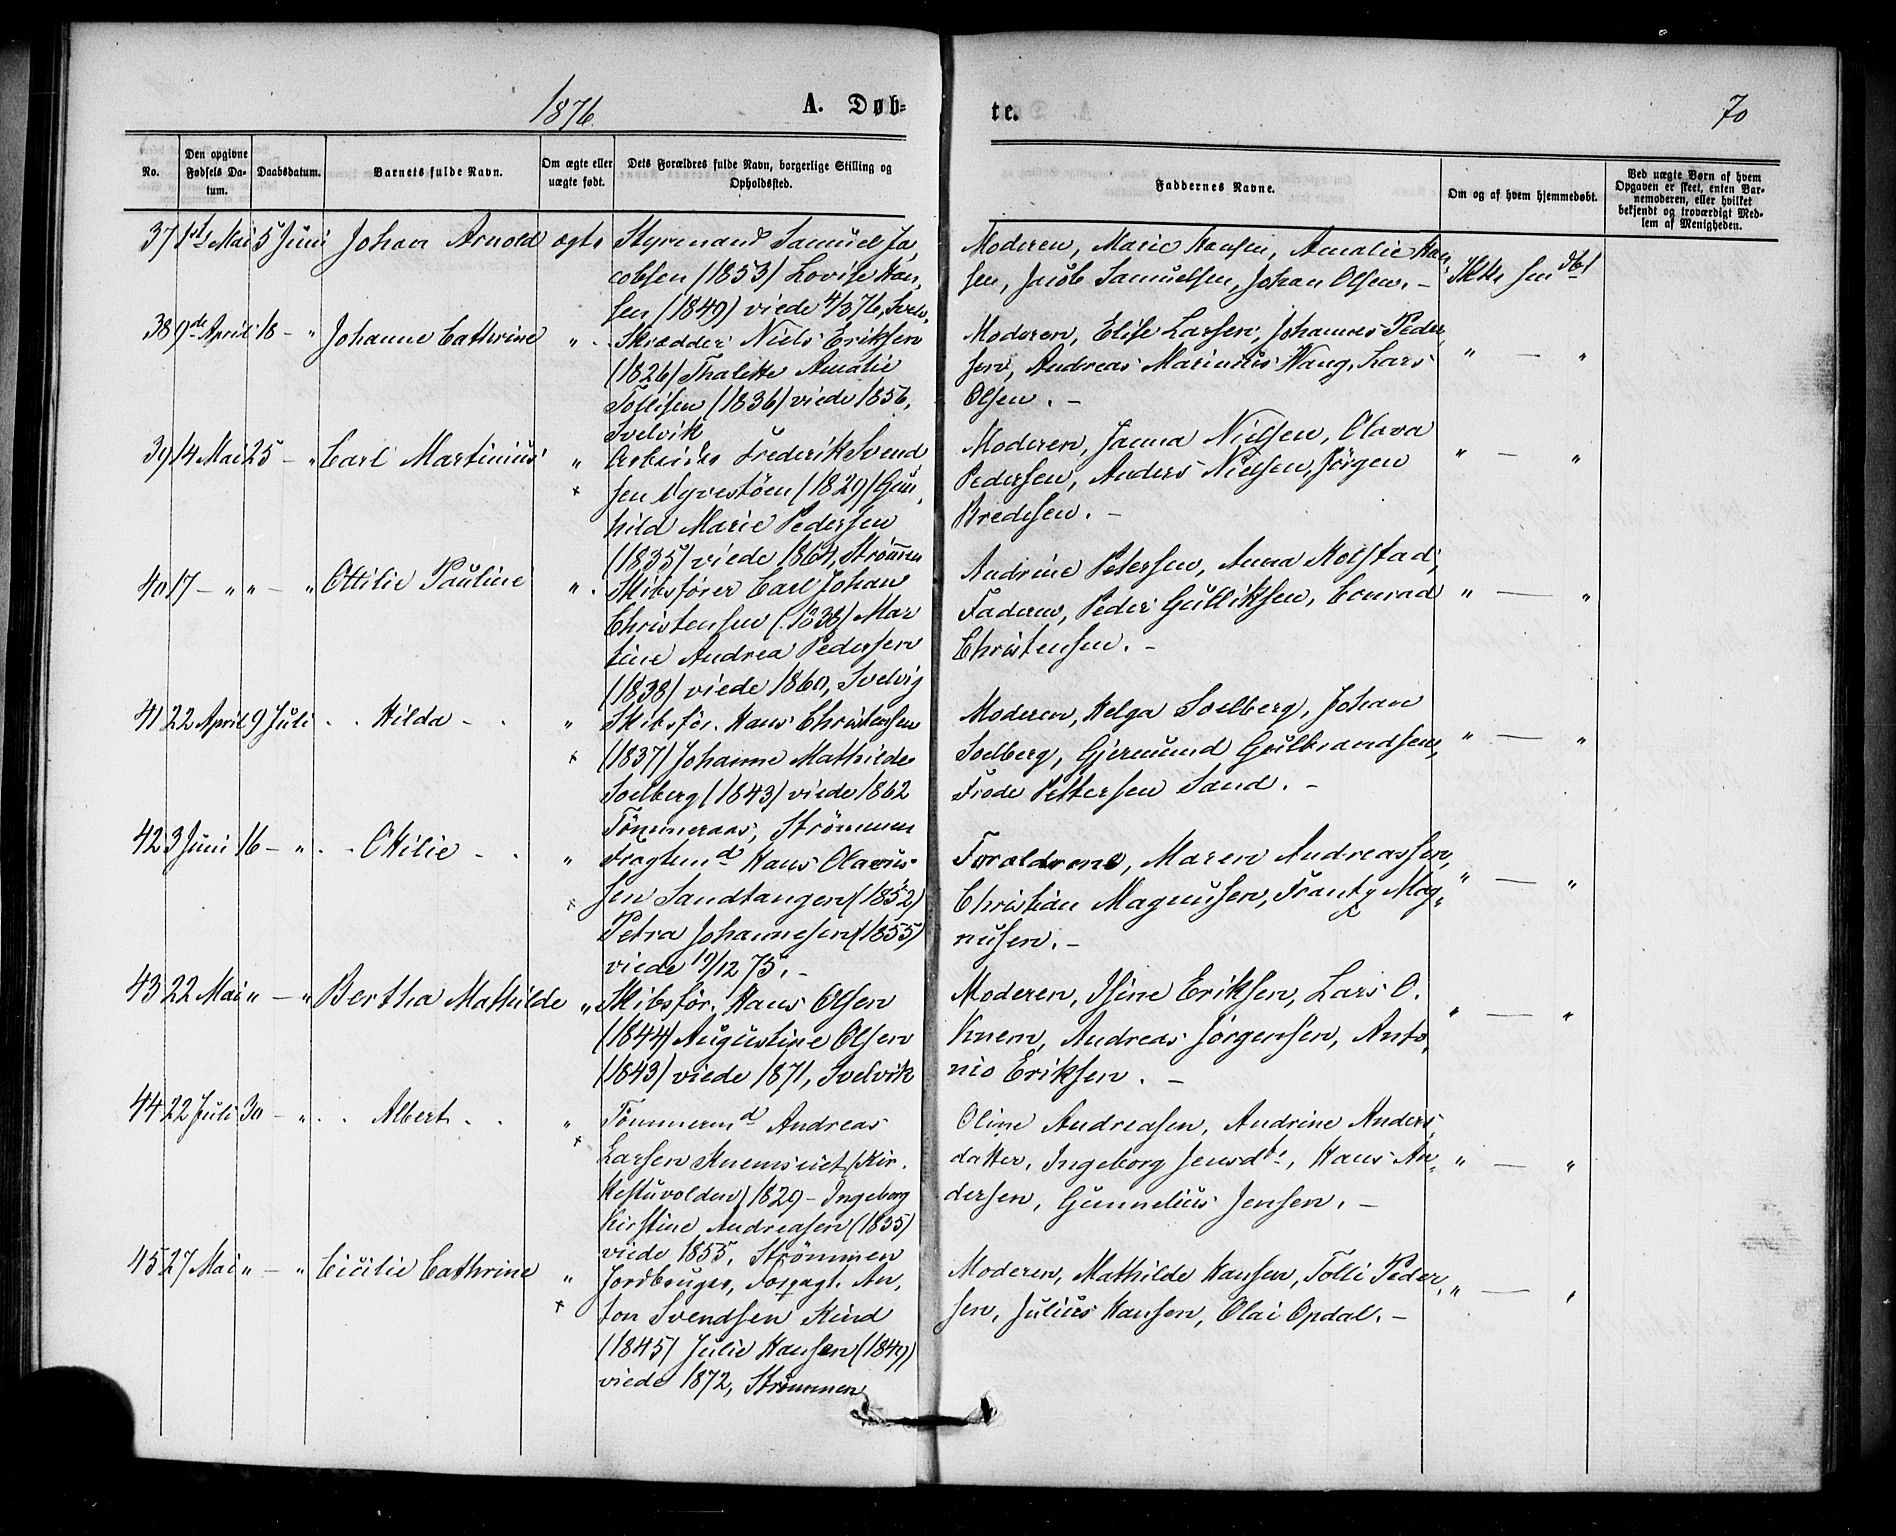 1876.
A. Døb-
te.
70
No.
Den opgivne
Fødsels Da-
tum.
Daabsdatum.
Barnets fulde Navn.
Om ægte eller
uægte født.
Dets Forældres fulde Navn, borgerlige Stilling og
Opholdsted.
Faddernes Navne.
Om og af hvem hjemmedøbt.
Ved uægte Børn af hvem
Opgaven er skeet, enten Bar-
nemoderen, eller hvilket
bekjendt og troværdigt Med-
lem af Menigheden.
37 1ste Mai 5 Juni Johan Arnold ægte Styrmand Samuel Ja
cobsen (1853) Lovise Han,
sen (1849) viede 4/3 76, Svelv.
Moderen, Marie Hansen, Amalie Han,
sen, Jacob Samuelsen, Johan Olsen. –
Ikke hmdbt
38 9de April 18 – " Johanne Cathrine " . Skrædder Niels Eriksen
(1826) Thalette Amalie
Tollisen (1836) viede 1856,
Svelvik
Moderen, Elise Larsen, Johannes Peder,
sen, Andreas Marinius Waug, Lars
Olsen. –
" — "
39 14 Mai 25 – " Carl Martinius " Arbeider Frederik Svend
sen (1829) Gun,
hild Marie Pedersen
(1835) viede 1864, Strømmen
Moderen, Janna Nielsen, Olava
Pedersen, Anders Nielsen, Jörgen
Bredesen. –
" — "
40 17 – " " – " Ottilie Pauline " . Skibsfører Carl Johan
Christensen (1838) Mar
tine Andrea Pedersen
(1838) viede 1860, Svelvig
Andrine Petersen, Anna Kolstad,
Faderen, Peder Gulliksen, Conrad
Christensen. –
" — "
41 22 April 9 Juli . . Hilda – . " Skibsför. Hans Christensen
+ (1837) Johanne Mathilde
Solberg (1843) viede 1862
Tömmeraas, Strömmen
Moderen, Helga Solberg, Johan
Solberg, Gjermund Gulbrandsen,
Frode Pettersen Sand. –
" — "
42 3 Juni 16 – " . . Ottilie – . " Fragtemd Hans Olavus
+ sen Sandtangen (1852)
Petra Johannesen (1855)
viede 19/12 75. –
Forældrene, Maren Andreassen,
Christian Magnusen, Frantz Mag,
nusen. –
" — "
43 22 Mai " – " Bertha Mathilde " Skibsför. Hans Olsen
(1844) Augustine Olsen
(1843) viede 1871, Svelvik
Moderen, Sine Eriksen, Lars O.
Knem, Andreas Jörgensen, Anto,
nio Eriksen. –
" — "
44 22 Juli 30 – " . . Albert . . " Tömmermd Andreas
+ Larsen (Kir.
kestuvolden) 1829 – Ingeborg
Kirstine Andreasen (1835)
viede 1855, Strömmen
Oline Andreasen, Andrine Anders,
datter, Ingeborg Jensdtr, Hans An,
dersen, Gunnelius Jensen. –
" — "
45 27 Mai " – " Cicilie Cathrine " Jordbruger, Forpagt. An,
+ ton Svendsen Kind
(1845) Julie Hansen (1849)
viede 1872, Strømmen
Moderen, Mathilde Hansen, Tolli Peder,
sen, Julius Hansen, Olai Opdal. –
" — "